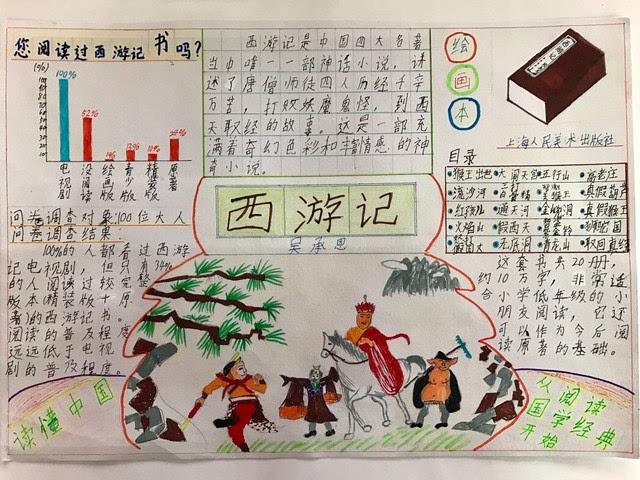 您阅读过西游记书吗？
(%)
100%
52%
14%
12%
10%
24%
电视剧
没阅读
绘画版
青少版
精装版
原著
问卷调查对象：100位大人
问卷调查结果：
100%的人都看过西游
记电视剧，但只有34%
的人阅读过较完整
版本(精装版+原
著)的西游记书。
阅读的普及程度
远远低于电视
剧的普及程度。
读懂中国
西游记是中国四大名著
当中唯一一部神话小说，讲
述了唐僧师徒四人历经千辛
万苦，打败妖魔鬼怪，到西
天取经的故事。这是一部充
满着奇幻色彩和丰富情感的神
奇小说。
西游记
吴承恩
绘
画
本
西游记
上海人民美术出版社
目录
猴王出世
大闹天宫
五行山
高老庄
流沙河
真假葫芦
红孩儿
通天河
金𠒇洞
真假猴王
火焰山
无底洞
青龙山
取回真经
这套书共20册，
约10万字，非常适
合小学低年级的小
朋友阅读，它还
可以作为今后阅
读原著的基础。
从阅读
国学经典
开始